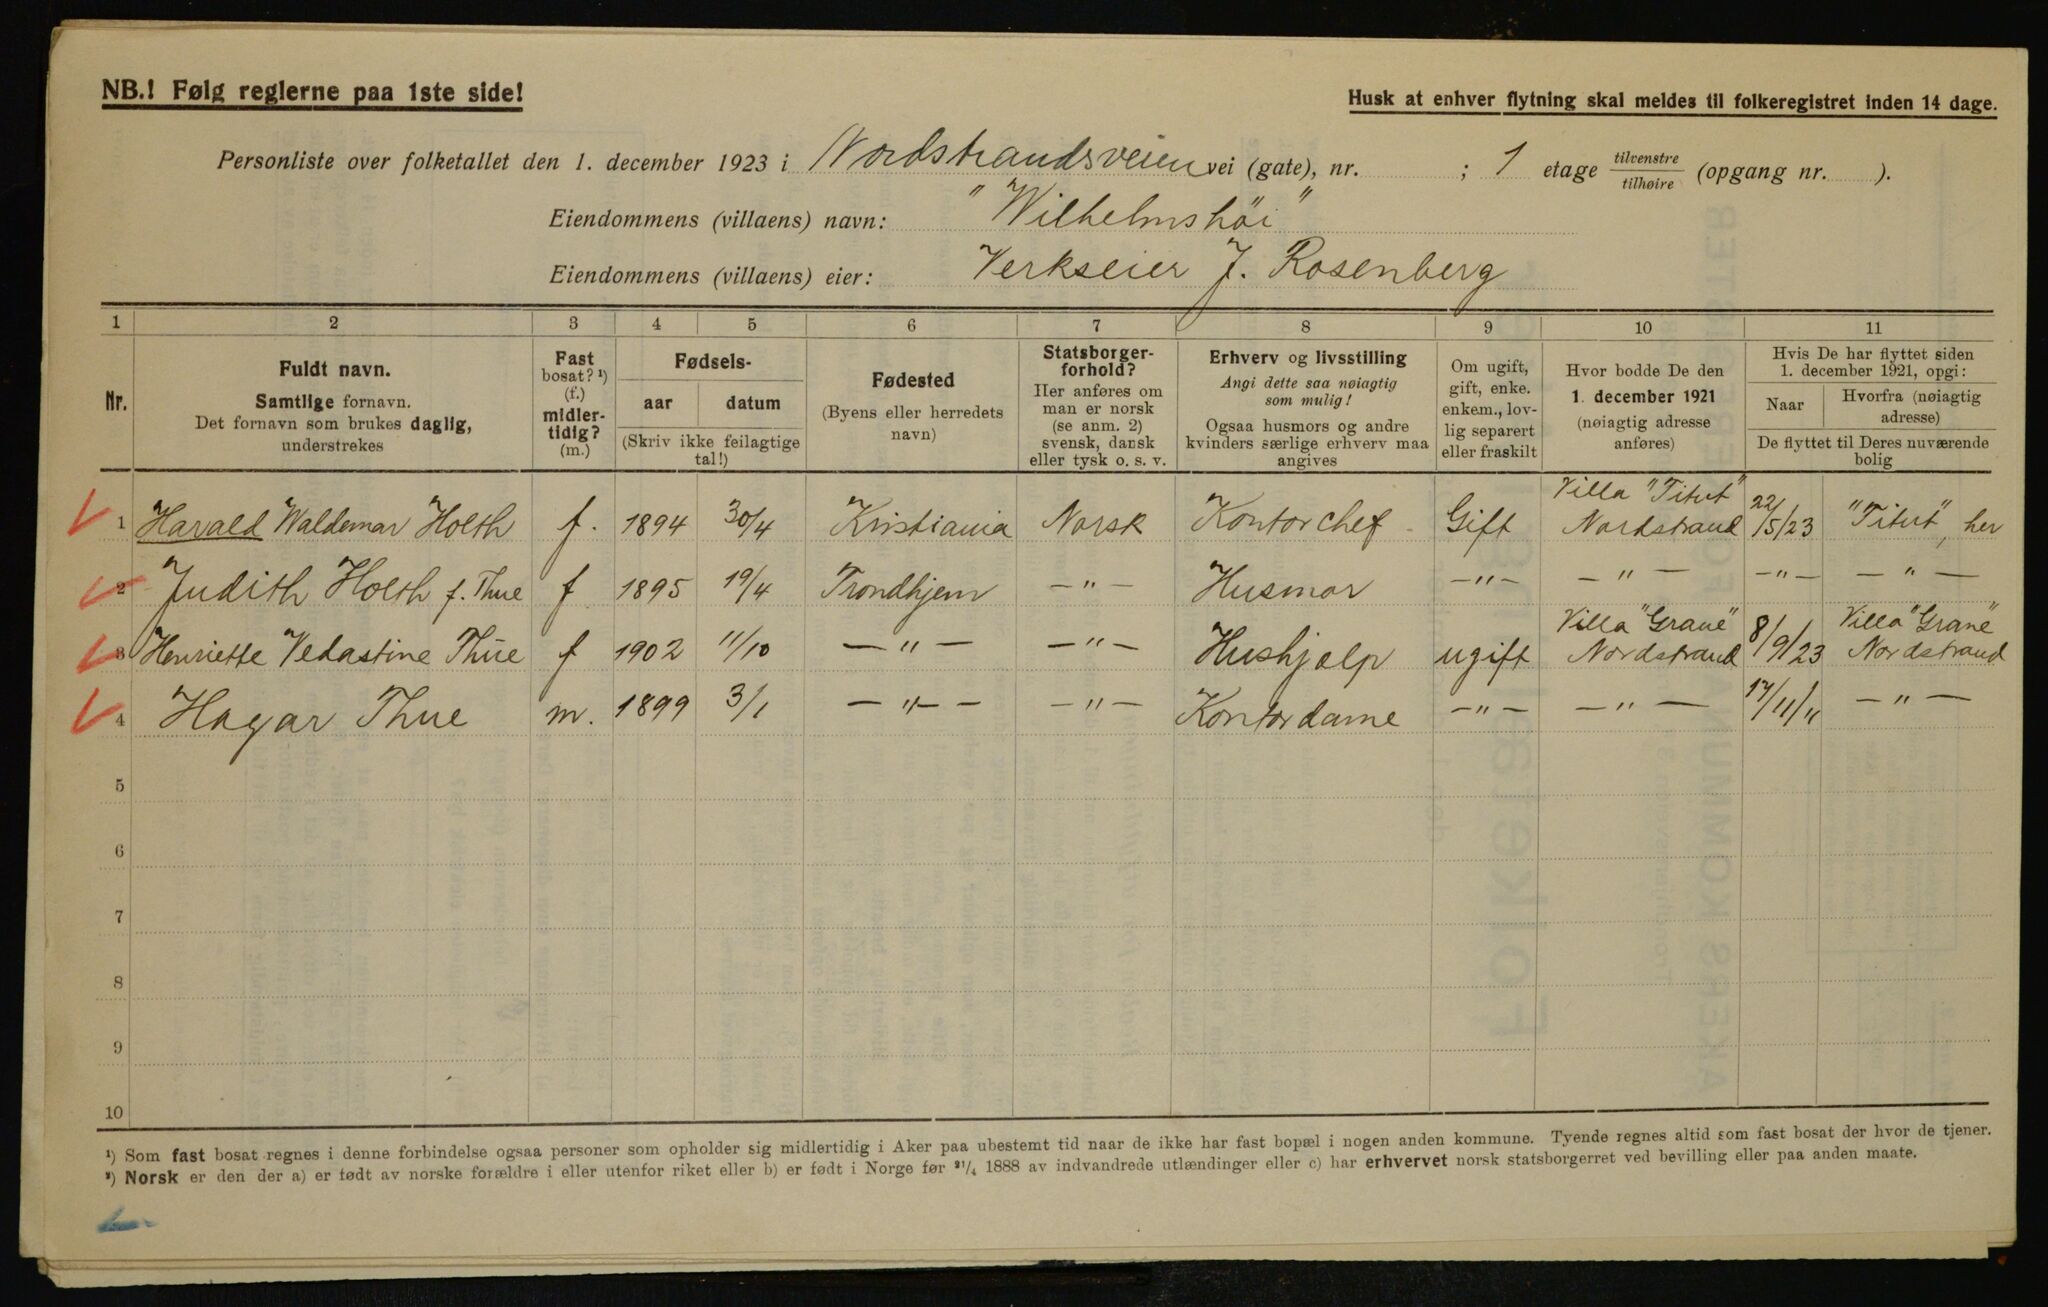 NB.! Følg reglerne paa 1ste side!
Husk at enhver flytning skal meldes til folkeregistret inden 14 dage.
Personliste over folketallet den 1. december 1923 i Nordstrandsveien vei (gate), nr. ; 1 etage tilvenstre/tilhøire (opgang nr. ).
Eiendommens (villaens) navn: "Wilhelmshöi"
Eiendommens (villaens) eier: Verkseier J. Rosenberg
1 2 3 4 5 6 7 8 9 10 11
Nr.
Fuldt navn.
Samtlige fornavn.
Det fornavn som brukes daglig,
understrekes
Fast
bosat? ¹)
(f.)
midler-
tidig?
(m.)
Fødsels-
aar datum
(Skriv ikke feilagtige
tal!)
Fødested
(Byens eller herredets
navn)
Statsborger-
forhold?
Her anføres om
man er norsk
(se anm. 2)
svensk, dansk
eller tysk o. s. v.
Erhverv og livsstilling
Angi dette saa nøiagtig
som mulig!
Ogsaa husmors og andre
kvinders særlige erhverv maa
angives
Om ugift,
gift, enke.
enkem., lov-
lig separert
eller fraskilt
Hvor bodde De den
1. december 1921
(nøiagtig adresse
anføres)
Hvis De har flyttet siden
1. december 1921, opgi:
Naar
Hvorfra (nøiagtig
adresse)
De flyttet til Deres nuværende
bolig
1 Harald Waldemar Holth f. 1894 30/4 Kristiania Norsk Kontorchef Gift Villa "Titut" Nordstrand 22/5/23 "Titut", her
2 Judith Holth f. Thue f 1895 19/4 Trondhjem -"- Husmor -"- -"- -"- -"-
3 Henriette Vedastine Thue f 1902 11/10 -"- -"- Hushjælp ugift Villa "Grane" Nordstrand 8/9/23 Villa "Grane" Nordstrand
4 Hagar Thue m. 1899 3/1 -"- -"- Kontordame -"- -"- 17/11/" -"-
5
6
7
8
9
10
¹) Som fast bosat regnes i denne forbindelse ogsaa personer som opholder sig midlertidig i Aker paa ubestemt tid naar de ikke har fast bopæl i nogen anden kommune. Tyende regnes altid som fast bosat der hvor de tjener.
²) Norsk er den der a) er født av norske forældre i eller utenfor riket eller b) er født i Norge før ²¹/₄ 1888 av indvandrede utlændinger eller c) har erhvervet norsk statsborgerret ved bevilling eller paa anden maate.